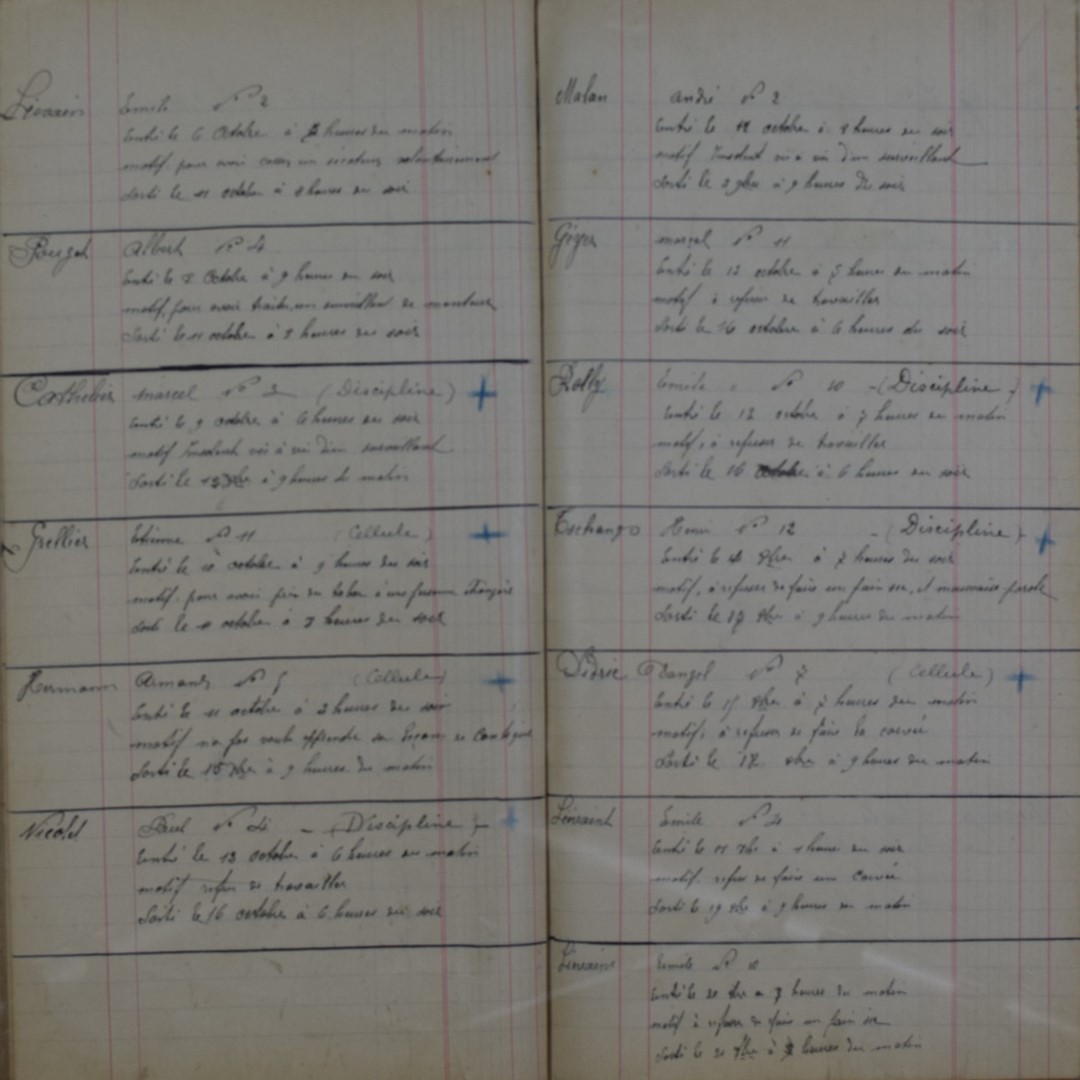 Emile N° 2
Entré le 6 Octobre à heures du matin
motif pour avoir un volontairement
Sorti le 11 octobre à 8 heures du soir
Albert N° 4
Entré le 8 Octobre à 9 heures du soir
motif, pour avoir traiter un surveillant de menteur
Sorti le 11 octobre à 8 heures du soir
Cathelier Marcel N° 2 (Discipline) +
Entré le 9 octobre à 6 heures du soir
motif Insolent vis à vis d'un surveillant
Sorti le à 9 heures du matin
Grellier Etienne N° 11 (Cellule) +
Entré le 10 octobre à 9 heures du soir
motif. pour avoir pris du tabac à une personne étrangère
Sorti le 11 octobre à 7 heures du soir
Hermann Armand N° 5 (Cellule) +
Entré le 11 octobre à 2 heures du soir
motif n'a pas voulu apprendre sa leçon de
Sorti le 15 8bre à 9 heures du matin
Nicolet Paul N° 4 - (Discipline) - +
Entré le 13 octobre à 6 heures du matin
motif refus de travailler
Sorti le 16 octobre à 6 heures du soir
Malan André N° 2
Entré le 12 octobre à 8 heures du soir
motif Insolent vis à vis d'un surveillant
Sorti le 2 9bre à 9 heures du soir
Giger marcel N° 11
Entré le 13 octobre à 7 heures du matin
motif à refuser de travailler
Sorti le 16 octobre à 6 heures du soir
Rolly Emile N° 10 - (Discipline) +
Entré le 13 octobre à 7 heures du matin
motif, à refuser de travailler
Sorti le 16 octobre à 6 heures du soir
Tschango Henri N° 12 - (Discipline) +
Entré le 14 8bre à 7 heures du soir
motif, à refuser de faire un pain sec, et mauvaise parole
Sorti le 17 8bre à 9 heures du matin
N° 7 (Cellule) +
Entré le 15 8bre à 7 heures du matin
motif, à refuser de faire la corvée
Sorti le 17 8bre à 9 heures du matin
Emile N° 4
Entré le 8bre à 1 heure du soir
motif. refus de faire une corvée
Sorti le 19 8bre à 9 heures du matin
Emile N° 10
Entré le 20 8bre à 7 heures du matin
motif à refuser de faire un pain sec
Sorti le 21 8bre à heures du matin